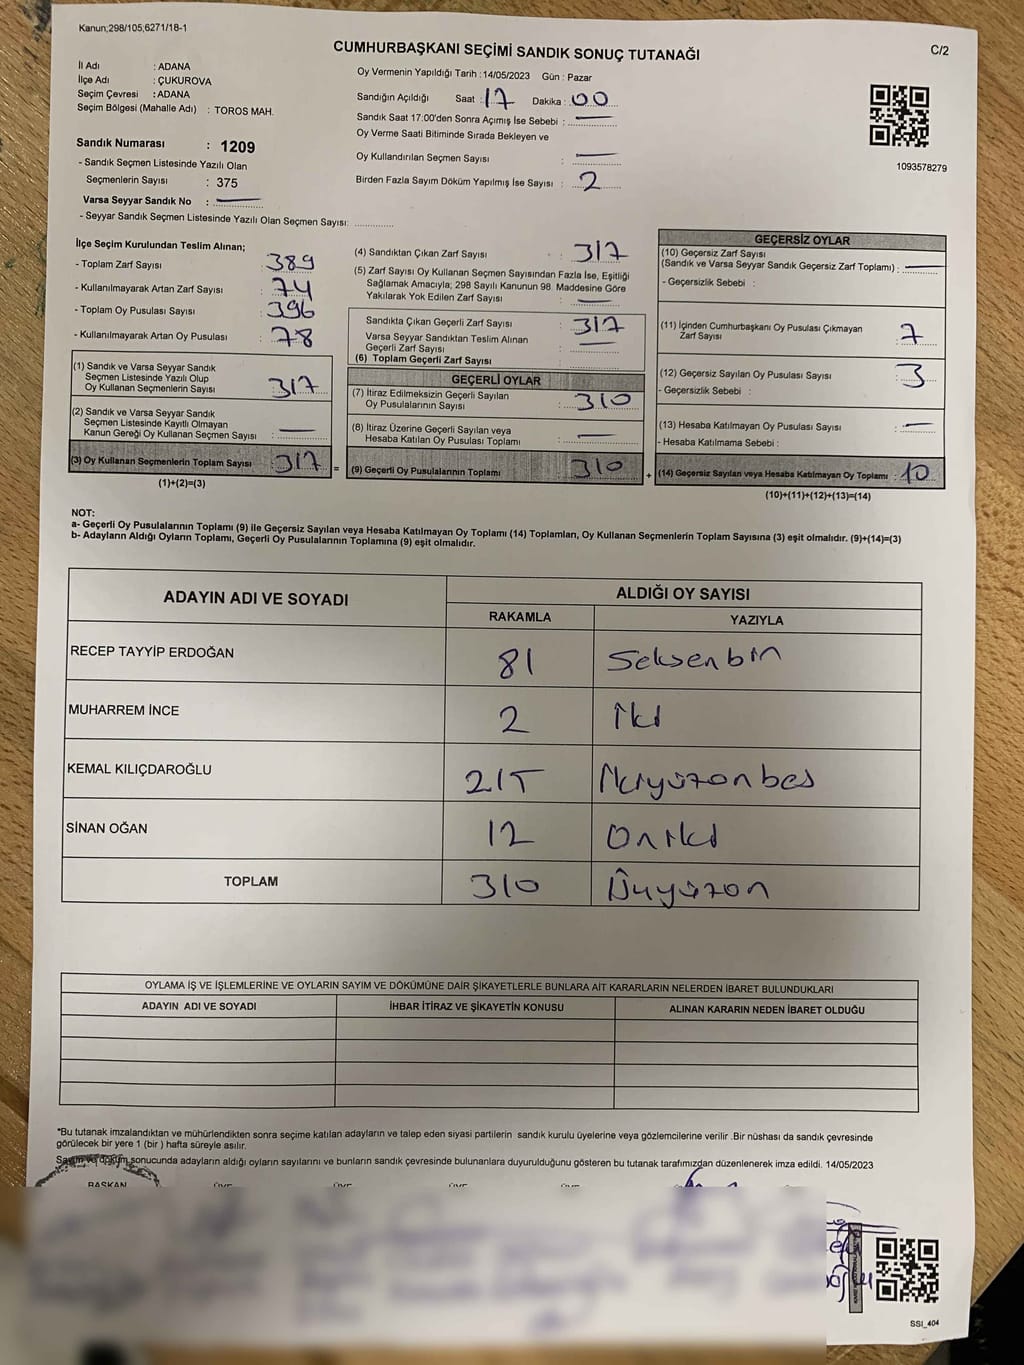 Kanun;298/105;6271/18-1
CUMHURBAŞKANI SEÇİMİ SANDIK SONUÇ TUTANAĞI
C/2
İl Adı : ADANA
İlçe Adı : ÇUKUROVA
Seçim Çevresi : ADANA
Seçim Bölgesi (Mahalle Adı) : TOROS MAH.
Sandık Numarası : 1209
- Sandık Seçmen Listesinde Yazılı Olan
Seçmenlerin Sayısı : 375
Varsa Seyyar Sandık No :
- Seyyar Sandık Seçmen Listesinde Yazılı Olan Seçmen Sayısı:
Oy Vermenin Yapıldığı Tarih : 14/05/2023 Gün : Pazar
Sandığın Açıldığı Saat : 17 Dakika : 00
Sandık Saat 17:00'den Sonra Açımış İse Sebebi :
Oy Verme Saati Bitiminde Sırada Bekleyen ve
Oy Kullandırılan Seçmen Sayısı :
Birden Fazla Sayım Döküm Yapılmış İse Sayısı : 2
1093578279
İlçe Seçim Kurulundan Teslim Alınan;
- Toplam Zarf Sayısı : 389
- Kullanılmayarak Artan Zarf Sayısı : 74
- Toplam Oy Pusulası Sayısı : 396
- Kullanılmayarak Artan Oy Pusulası : 78
(1) Sandık ve Varsa Seyyar Sandık
Seçmen Listesinde Yazılı Olup
Oy Kullanan Seçmenlerin Sayısı : 317
(2) Sandık ve Varsa Seyyar Sandık
Seçmen Listesinde Kayıtlı Olmayan
Kanun Gereği Oy Kullanan Seçmen Sayısı :
(3) Oy Kullanan Seçmenlerin Toplam Sayısı : 317
(1)+(2)=(3)
(4) Sandıktan Çıkan Zarf Sayısı : 317
(5) Zarf Sayısı Oy Kullanan Seçmen Sayısından Fazla İse, Eşitliği
Sağlamak Amacıyla; 298 Sayılı Kanunun 98. Maddesine Göre
Yakılarak Yok Edilen Zarf Sayısı :
Sandıkta Çıkan Geçerli Zarf Sayısı : 317
Varsa Seyyar Sandıktan Teslim Alınan
Geçerli Zarf Sayısı :
(6) Toplam Geçerli Zarf Sayısı :
GEÇERLİ OYLAR
(7) İtiraz Edilmeksizin Geçerli Sayılan
Oy Pusulalarının Sayısı : 310
(8) İtiraz Üzerine Geçerli Sayılan veya
Hesaba Katılan Oy Pusulası Toplamı :
= (9) Geçerli Oy Pusulalarının Toplamı : 310
GEÇERSİZ OYLAR
(10) Geçersiz Zarf Sayısı
(Sandık ve Varsa Seyyar Sandık Geçersiz Zarf Toplamı) :
- Geçersizlik Sebebi :
(11) İçinden Cumhurbaşkanı Oy Pusulası Çıkmayan
Zarf Sayısı : 7
(12) Geçersiz Sayılan Oy Pusulası Sayısı : 3
- Geçersizlik Sebebi :
(13) Hesaba Katılmayan Oy Pusulası Sayısı :
- Hesaba Katılmama Sebebi :
+ (14) Geçersiz Sayılan veya Hesaba Katılmayan Oy Toplamı : 10
(10)+(11)+(12)+(13)=(14)
NOT:
a- Geçerli Oy Pusulalarının Toplamı (9) ile Geçersiz Sayılan veya Hesaba Katılmayan Oy Toplamı (14) Toplamları, Oy Kullanan Seçmenlerin Toplam Sayısına (3) eşit olmalıdır. (9)+(14)=(3)
b- Adayların Aldığı Oyların Toplamı, Geçerli Oy Pusulalarının Toplamına (9) eşit olmalıdır.
ADAYIN ADI VE SOYADI
ALDIĞI OY SAYISI
RAKAMLA YAZIYLA
RECEP TAYYİP ERDOĞAN 81 Seksenbin
MUHARREM İNCE 2 İki
KEMAL KILIÇDAROĞLU 215 İkiyüzonbeş
SİNAN OĞAN 12 Oniki
TOPLAM 310 Üçyüzon
OYLAMA İŞ VE İŞLEMLERİNE VE OYLARIN SAYIM VE DÖKÜMÜNE DAİR ŞİKAYETLERLE BUNLARA AİT KARARLARIN NELERDEN İBARET BULUNDUKLARI
ADAYIN ADI VE SOYADI İHBAR İTİRAZ VE ŞİKAYETİN KONUSU ALINAN KARARIN NEDEN İBARET OLDUĞU
*Bu tutanak imzalandıktan ve mühürlendikten sonra seçime katılan adayların ve talep eden siyasi partilerin sandık kurulu üyelerine veya gözlemcilerine verilir .Bir nüshası da sandık çevresinde
görülecek bir yere 1 (bir ) hafta süreyle asılır.
Sayım ve döküm sonucunda adayların aldığı oyların sayılarını ve bunların sandık çevresinde bulunanlara duyurulduğunu gösteren bu tutanak tarafımızdan düzenlenerek imza edildi. 14/05/2023
BAŞKAN ÜYE ÜYE ÜYE ÜYE
SSI_404